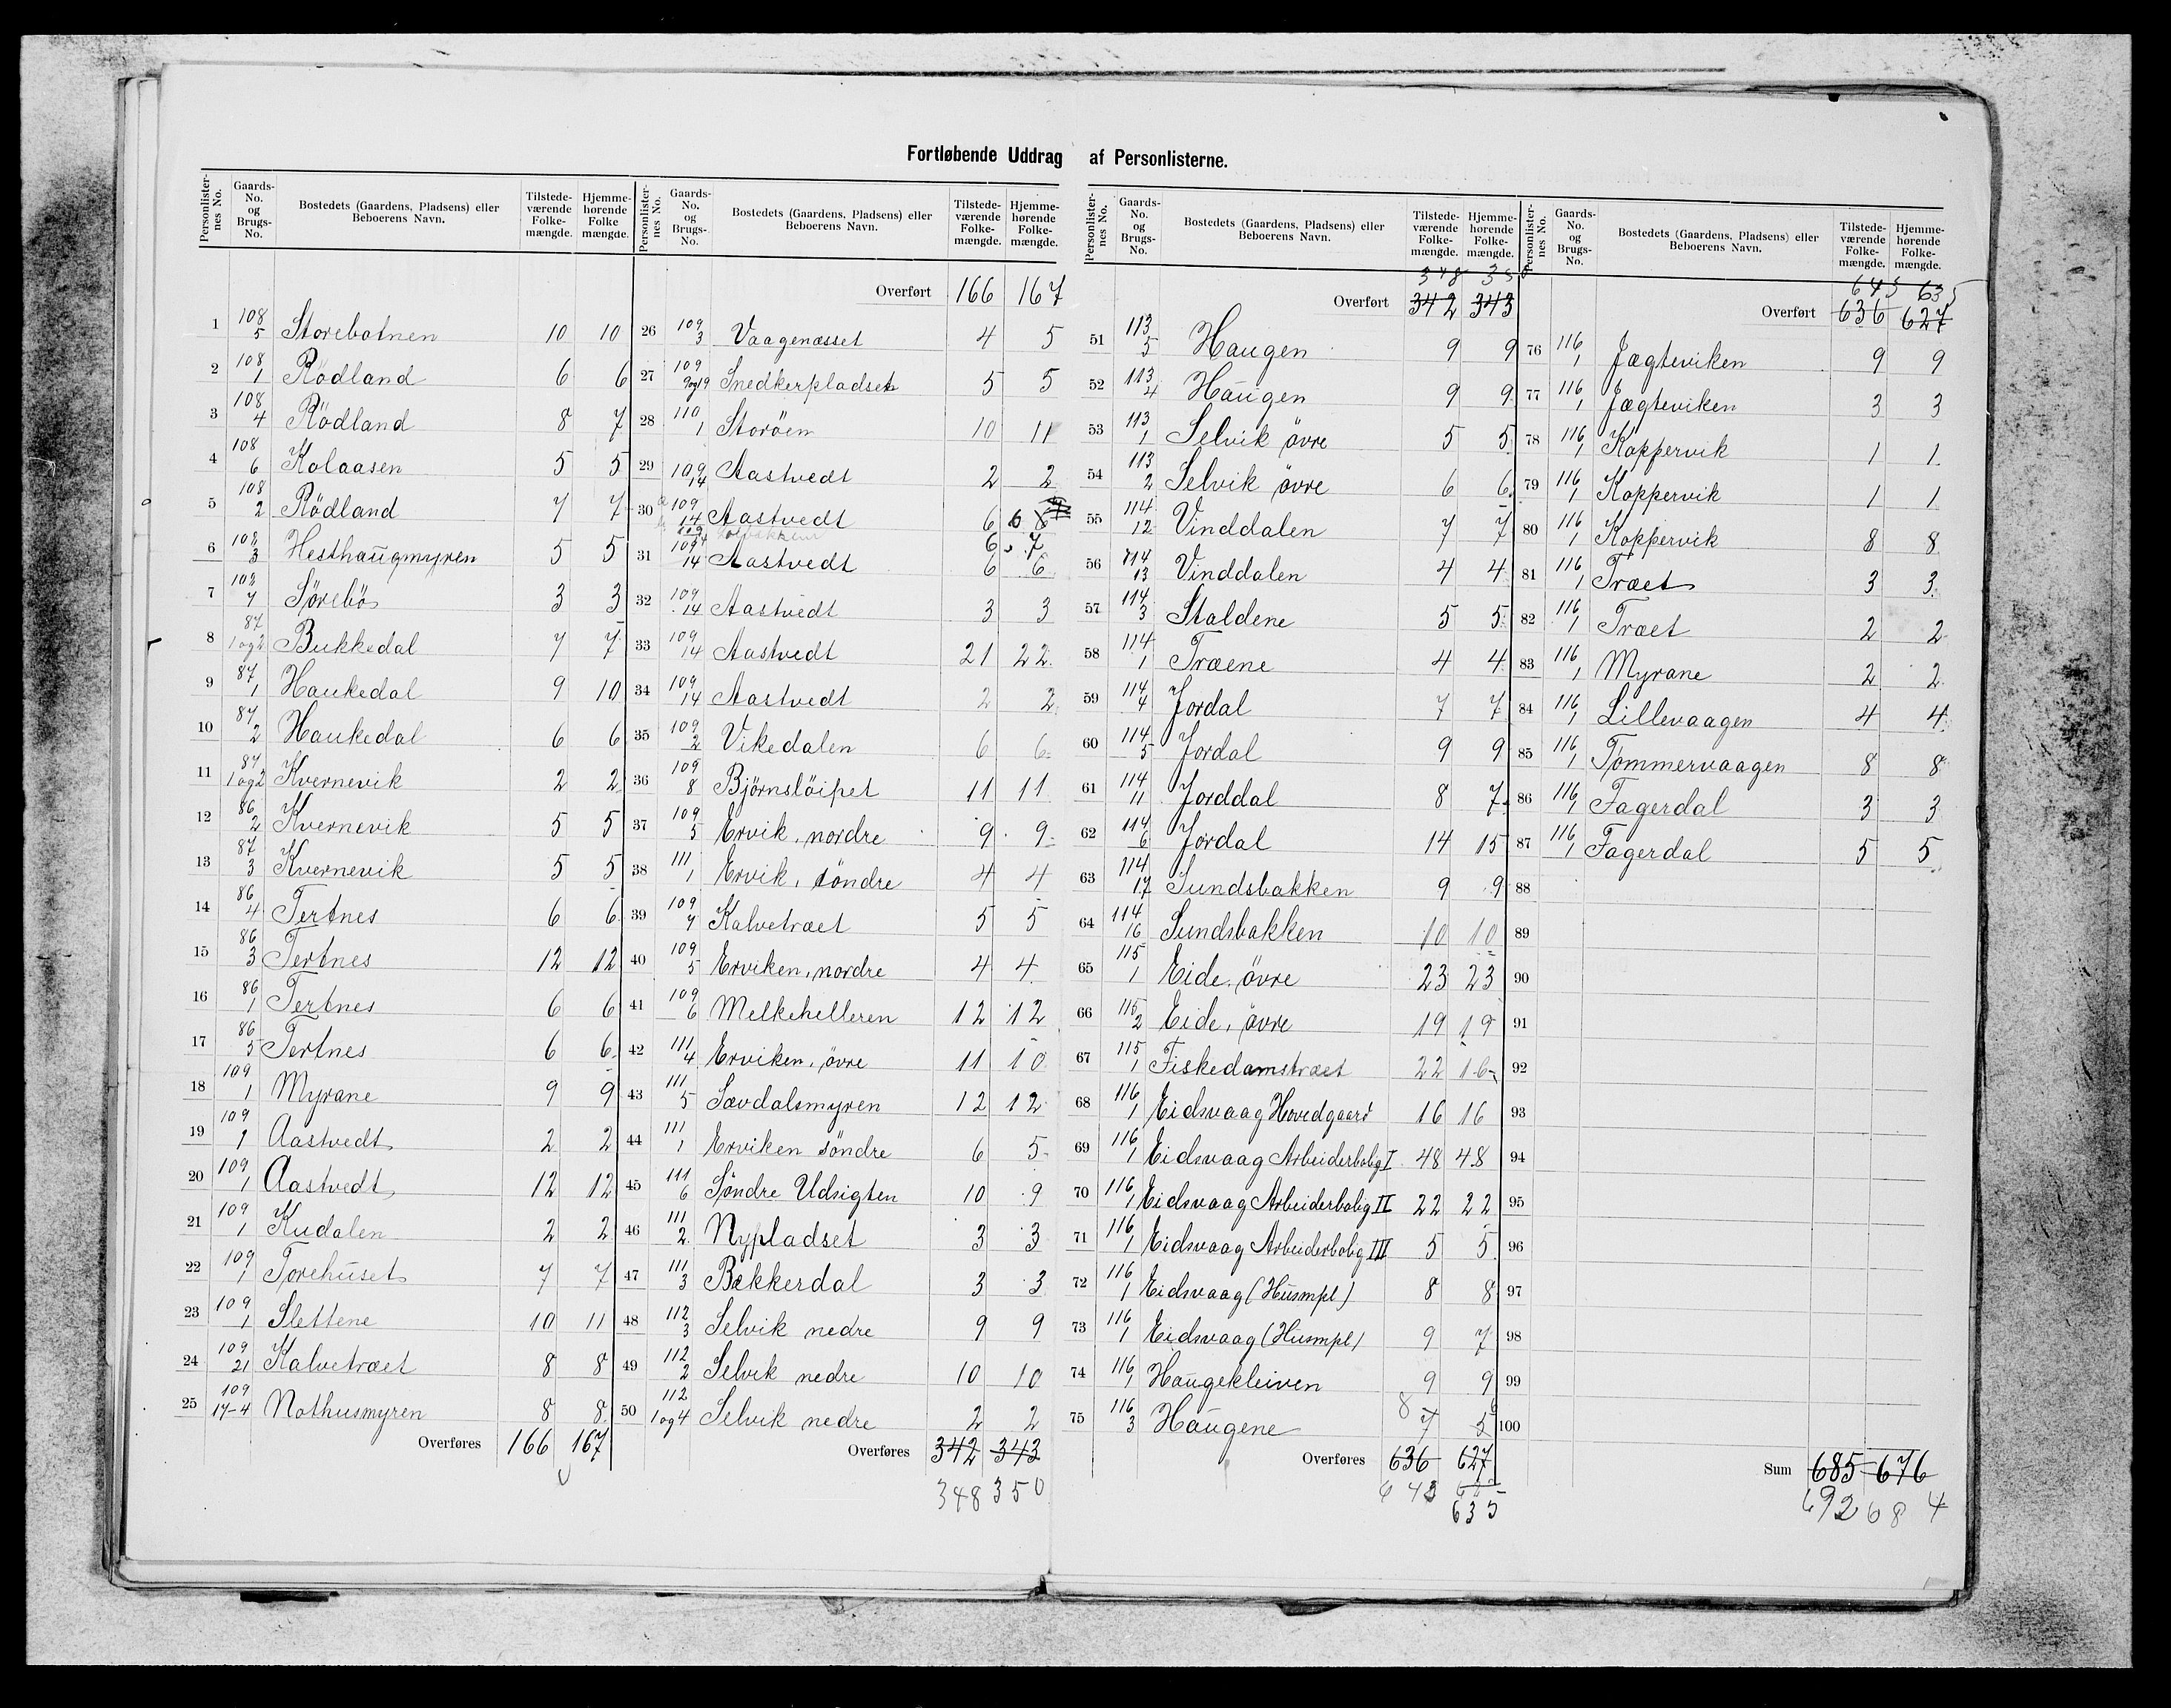 Fortløbende Uddrag af Personlisterne.
Personlisternes No. Gaards-No. og Brugs-No. Bostedets (Gaardens, Pladsens) eller Beboerens Navn. Tilstedeværende Folkemængde. Hjemmehørende Folkemængde.
1 108/5 Storebotnen 10 10
2 108/1 Rödland 6 6
3 108/4 Rödland 8 7
4 108/6 Kolaasen 5 5
5 108/2 Rödland 7 7
6 108/3 Hesthaugmyren 5 5
7 108/7 Sørebö 3 3
8 87/1og2 Bukkedal 7 7
9 87/1 Haukedal 9 10
10 87/2 Haukedal 6 6
11 87/1og2 Kvernevik 2 2
12 86/2 Kvernevik 5 5
13 87/3 Kvernevik 5 5
14 86/4 Tertnes 6 6
15 86/3 Tertnes 12 12
16 86/1 Tertnes 6 6
17 86/5 Tertnes 6 6
18 109/1 Myrane 9 9
19 109/1 Aastvedt 2 2
20 109/1 Aastvedt 12 12
21 109/1 Kudalen 2 2
22 109/1 Torehuset 7 7
23 109/1 Slettene 10 11
24 109/21 Kalvetræet 8 8
25 109/17-4 Nothusmyren 8 8
Overføres 166 167
Personlisternes No. Gaards-No. og Brugs-No. Bostedets (Gaardens, Pladsens) eller Beboerens Navn. Tilstedeværende Folkemængde. Hjemmehørende Folkemængde.
Overført 166 167
26 109/3 Vaagenæsset 4 5
27 109/9og19 Snedkerpladset 5 5
28 110/1 Storöen 10 11
29 109/14 Aastvedt 2 2
30 109/14 Aastvedt 6 6
6 7
31 109/14 Aastvedt 6 6
32 109/14 Aastvedt 3 3
33 109/14 Aastvedt 21 22
34 109/14 Aastvedt 2 2
35 109/2 Vikedalen 6 6
36 109/8 Bjørnslöipet 11 11
37 109/5 Ervik, nordre 9 9
38 111/1 Ervik, söndre 4 4
39 109/7 Kalvetræet 5 5
40 109/5 Erviken, nordre 4 4
41 109/6 Melkehelleren 12 12
42 111/4 Erviken, övre 11 10
43 111/5 Sævdalsmyren 12 12
44 111/1 Erviken söndre 6 5
45 111/6 Söndre Udsigten 10 9
46 111/2 Nypladset 3 3
47 111/3 Bekkerdal 3 3
48 112/3 Selvik nedre 9 9
49 112/2 Selvik nedre 10 10
50 112/1og4 Selvik nedre 2 2
Overføres 342 343
348 350
Personlisternes No. Gaards-No. og Brugs-No. Bostedets (Gaardens, Pladsens) eller Beboerens Navn. Tilstedeværende Folkemængde. Hjemmehørende Folkemængde.
348 350
Overført 342 343
51 113/5 Haugen 9 9
52 113/4 Haugen 9 9
53 113/1 Selvik övre 5 5
54 113/2 Selvik övre 6 6
55 114/12 Vinddalen 7 7
56 114/13 Vinddalen 4 4
57 114/3 Staldene 5 5
58 114/1 Træene 4 4
59 114/4 Jordal 7 7
60 114/5 Jordal 9 9
61 114/11 Jorddal 8 7
62 114/6 Jordal 14 15
63 114/17 Sundsbakken 9 9
64 114/16 Sundsbakken 10 10
65 115/1 Eide, övre 23 23
66 115/2 Eide, övre 19 19
67 115/1 Fiskedamstræet 22 16
68 116/1 Eidsvaag Hovedgaard 16 16
69 116/1 Eidsvaag Arbeiderbolig I 48 48
70 116/1 Eidsvaag Arbeiderbolig II 22 22
71 116/1 Eidsvaag Arbeiderbolig III 5 5
72 116/1 Eidsvaag (Husmpl) 8 8
73 116/1 Eidsvaag (Husmpl) 9 7
74 116/1 Haugekleiven 9 9
8
75 116/3 Haugene 7 5
Overføres 636 627
643
635
Personlisternes No. Gaards-No. og Brugs-No. Bostedets (Gaardens, Pladsens) eller Beboerens Navn. Tilstedeværende Folkemængde. Hjemmehørende Folkemængde.
643 635
Overført 636 627
76 116/1 Jægteviken 9 9
77 116/1 Jægteviken 3 3
78 116/1 Koppervik 1 1
79 116/1 Koppervik 1 1
80 116/1 Koppervik 8 8
81 116/1 Træet 3 3
82 116/1 Træet 2 2
83 116/1 Myrane 2 2
84 116/1 Lillevaagen 4 4
85 116/1 Tömmervaagen 8 8
86 116/1 Fagerdal 3 3
87 116/1 Fagerdal 5 5
88
89
90
91
92
93
94
95
96
97
98
99
100
Sum 685 676
692 684